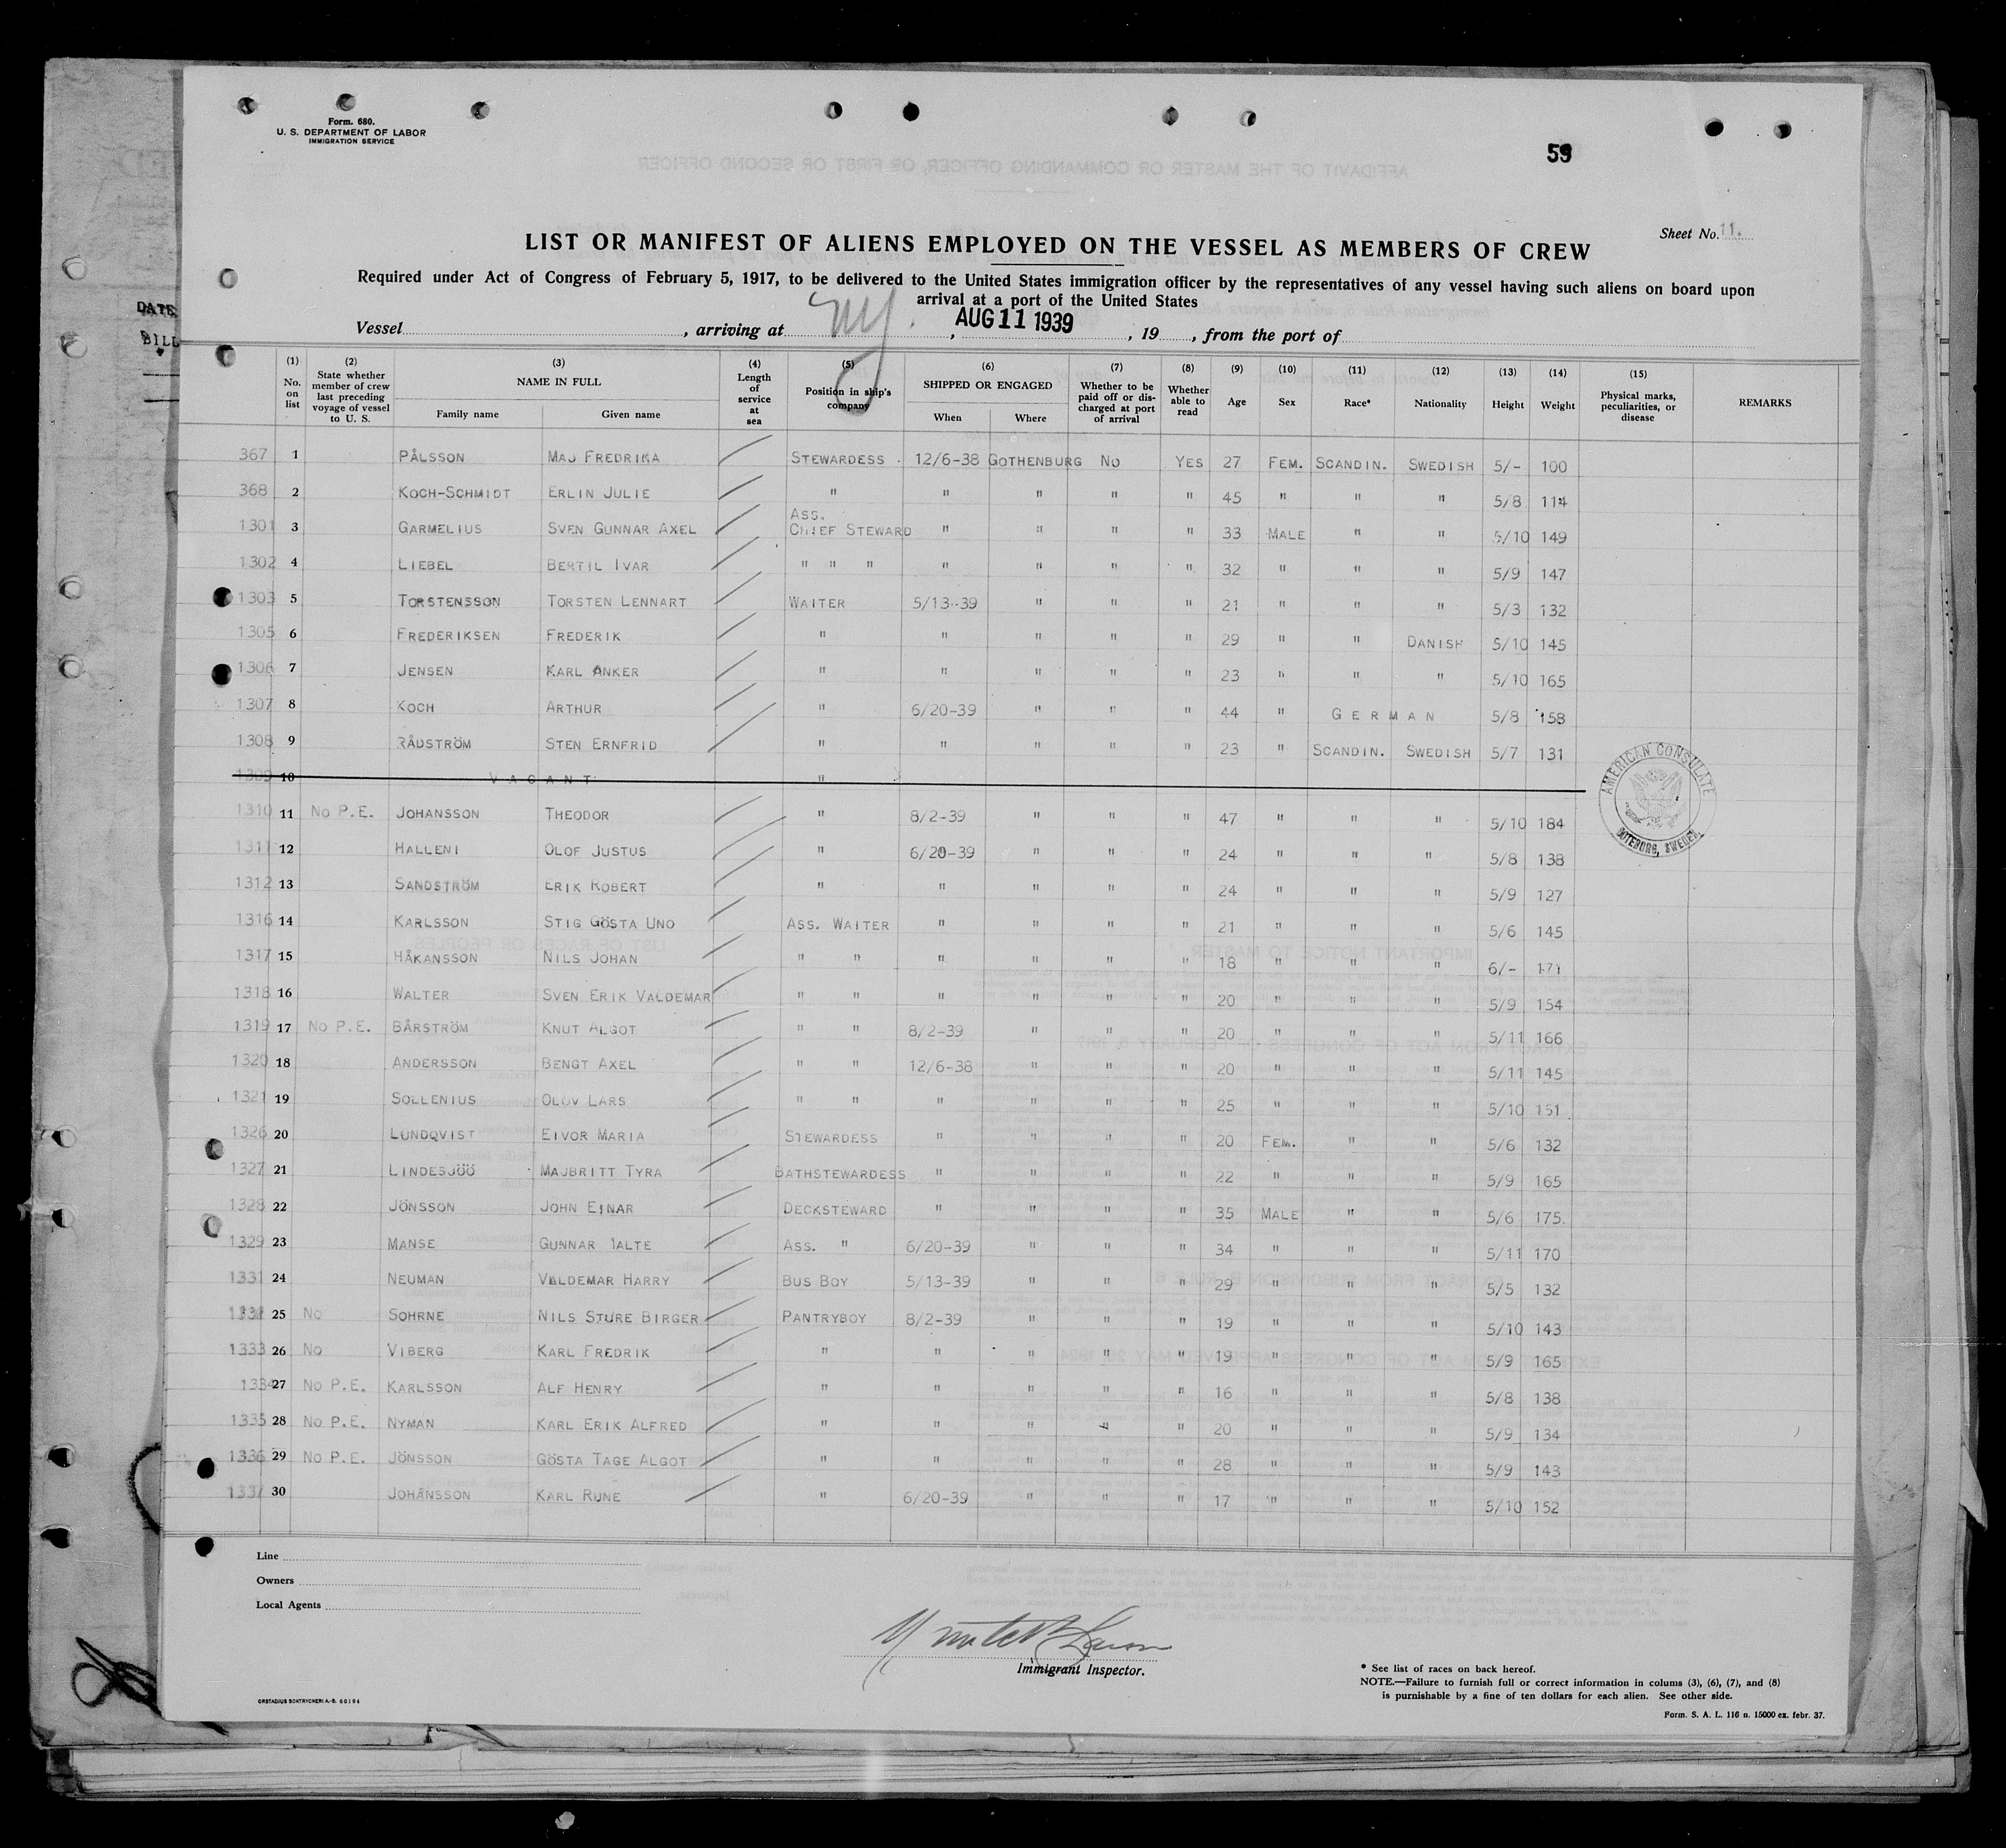 Form. 680.
U. S. DEPARTMENT OF LABOR
IMMIGRATION SERVICE
59
Sheet No. 11.
LIST OR MANIFEST OF ALIENS EMPLOYED ON THE VESSEL AS MEMBERS OF CREW
Required under Act of Congress of February 5, 1917, to be delivered to the United States immigration officer by the representatives of any vessel having such aliens on board upon
arrival at a port of the United States
DATE
BILL
Vessel , arriving at NY. , AUG 11 1939 , 19 , from the port of
(1) No. on list (2) State whether member of crew last preceding voyage of vessel to U. S. (3) NAME IN FULL Family name Given name (4) Length of service at sea (5) Position in ship's company (6) SHIPPED OR ENGAGED When Where (7) Whether to be paid off or discharged at port of arrival (8) Whether able to read (9) Age (10) Sex (11) Race* (12) Nationality (13) Height (14) Weight (15) Physical marks, peculiarities, or disease REMARKS
367 1 PÅLSSON MAJ FREDRIKA STEWARDESS 12/6-38 GOTHENBURG NO YES 27 FEM. SCANDIN. SWEDISH 5/- 100
368 2 KOCH-SCHMIDT ERLIN JULIE " " " " " 45 " " " 5/8 114
1301 3 GARMELIUS SVEN GUNNAR AXEL ASS. CHIEF STEWARD " " " " 33 MALE " " 5/10 149
1302 4 LIEBEL BERTIL IVAR " " " " " " " 32 " " " 5/9 147
1303 5 TORSTENSSON TORSTEN LENNART WAITER 5/13-39 " " " 21 " " " 5/3 132
1305 6 FREDERIKSEN FREDERIK " " " " " 29 " " DANISH 5/10 145
1306 7 JENSEN KARL ANKER " " " " " 23 " " " 5/10 165
1307 8 KOCH ARTHUR " 6/20-39 " " " 44 " GERMAN 5/8 158
1308 9 RÅDSTRÖM STEN ERNFRID " " " " " 23 " SCANDIN. SWEDISH 5/7 131
1309 10 VACANT "
1310 11 NO P.E. JOHANSSON THEODOR " 8/2-39 " " " 47 " " " 5/10 184
1311 12 HALLENI OLOF JUSTUS " 6/20-39 " " " 24 " " " 5/8 138
1312 13 SANDSTRÖM ERIK ROBERT " " " " " 24 " " " 5/9 127
1316 14 KARLSSON STIG GÖSTA UNO ASS. WAITER " " " " 21 " " " 5/6 145
1317 15 HÅKANSSON NILS JOHAN " " " " " " 18 " " " 6/- 171
1318 16 WALTER SVEN ERIK VALDEMAR " " " " " " 20 " " " 5/9 154
1319 17 NO P.E. BÅRSTRÖM KNUT ALGOT " " 8/2-39 " " " 20 " " " 5/11 166
1320 18 ANDERSSON BENGT AXEL " " 12/6-38 " " " 20 " " " 5/11 145
1321 19 SOLLENIUS OLOV LARS " " " " " " 25 " " " 5/10 151
1326 20 LUNDQVIST EIVOR MARIA STEWARDESS " " " " 20 FEM. " " 5/6 132
1327 21 LINDESJÖÖ MAJBRITT TYRA BATHSTEWARDESS " " " " 22 " " " 5/9 165
1328 22 JÖNSSON JOHN EINAR DECKSTEWARD " " " " 35 MALE " " 5/6 175
1329 23 MANSE GUNNAR ASS. " 6/20-39 " " " 34 " " " 5/11 170
1331 24 NEUMAN VALDEMAR HARRY BUS BOY 5/13-39 " " " 29 " " " 5/5 132
25 NO SOHRNE NILS STURE BIRGER PANTRYBOY 8/2-39 " " " 19 " " " 5/10 143
1333 26 NO VIBERG KARL FREDRIK " " " " " 19 " " " 5/9 165
1334 27 NO P.E. KARLSSON ALF HENRY " " " " " 16 " " " 5/8 138
1335 28 NO P.E. NYMAN KARL ERIK ALFRED " " " " " 20 " " " 5/9 134
1336 29 NO P.E. JÖNSSON GÖSTA TAGE ALGOT " " " " " 28 " " " 5/9 143
1337 30 JOHANSSON KARL RUNE " 6/20-39 " " " 17 " " " 5/10 152
AMERICAN CONSULATE
GOTEBORG, SWEDEN.
Line
Owners
Local Agents
Immigrant Inspector.
* See list of races on back hereof.
NOTE.—Failure to furnish full or correct information in colums (3), (6), (7), and (8)
is punishable by a fine of ten dollars for each alien. See other side.
Form. S. A. L. 116 n. 15000 ex. febr. 37.